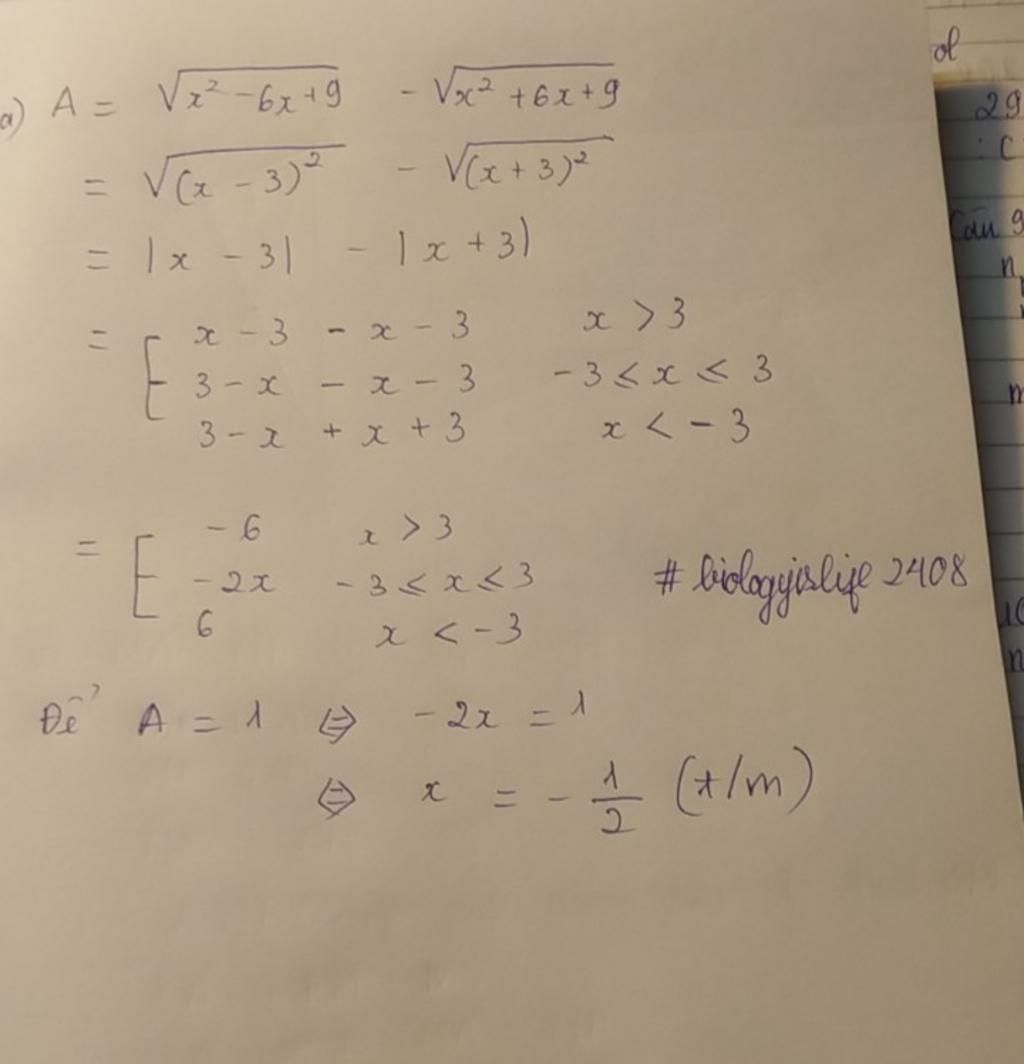 a) A = √(x² - 6x + 9) - √(x² + 6x + 9)
= √(x - 3)² - √(x + 3)²
= |x - 3| - |x + 3|
= [ x - 3 - x - 3 x > 3
3 - x - x - 3 -3 ≤ x ≤ 3
3 - x + x + 3 x < -3
= [ -6 x > 3
-2x -3 ≤ x ≤ 3
6 x < -3
# biologyislife 2408
Để A = 1 ⇔ -2x = 1
⇔ x = -1/2 (t/m)
ol
29
: C
Câu 9
n
m
10
n